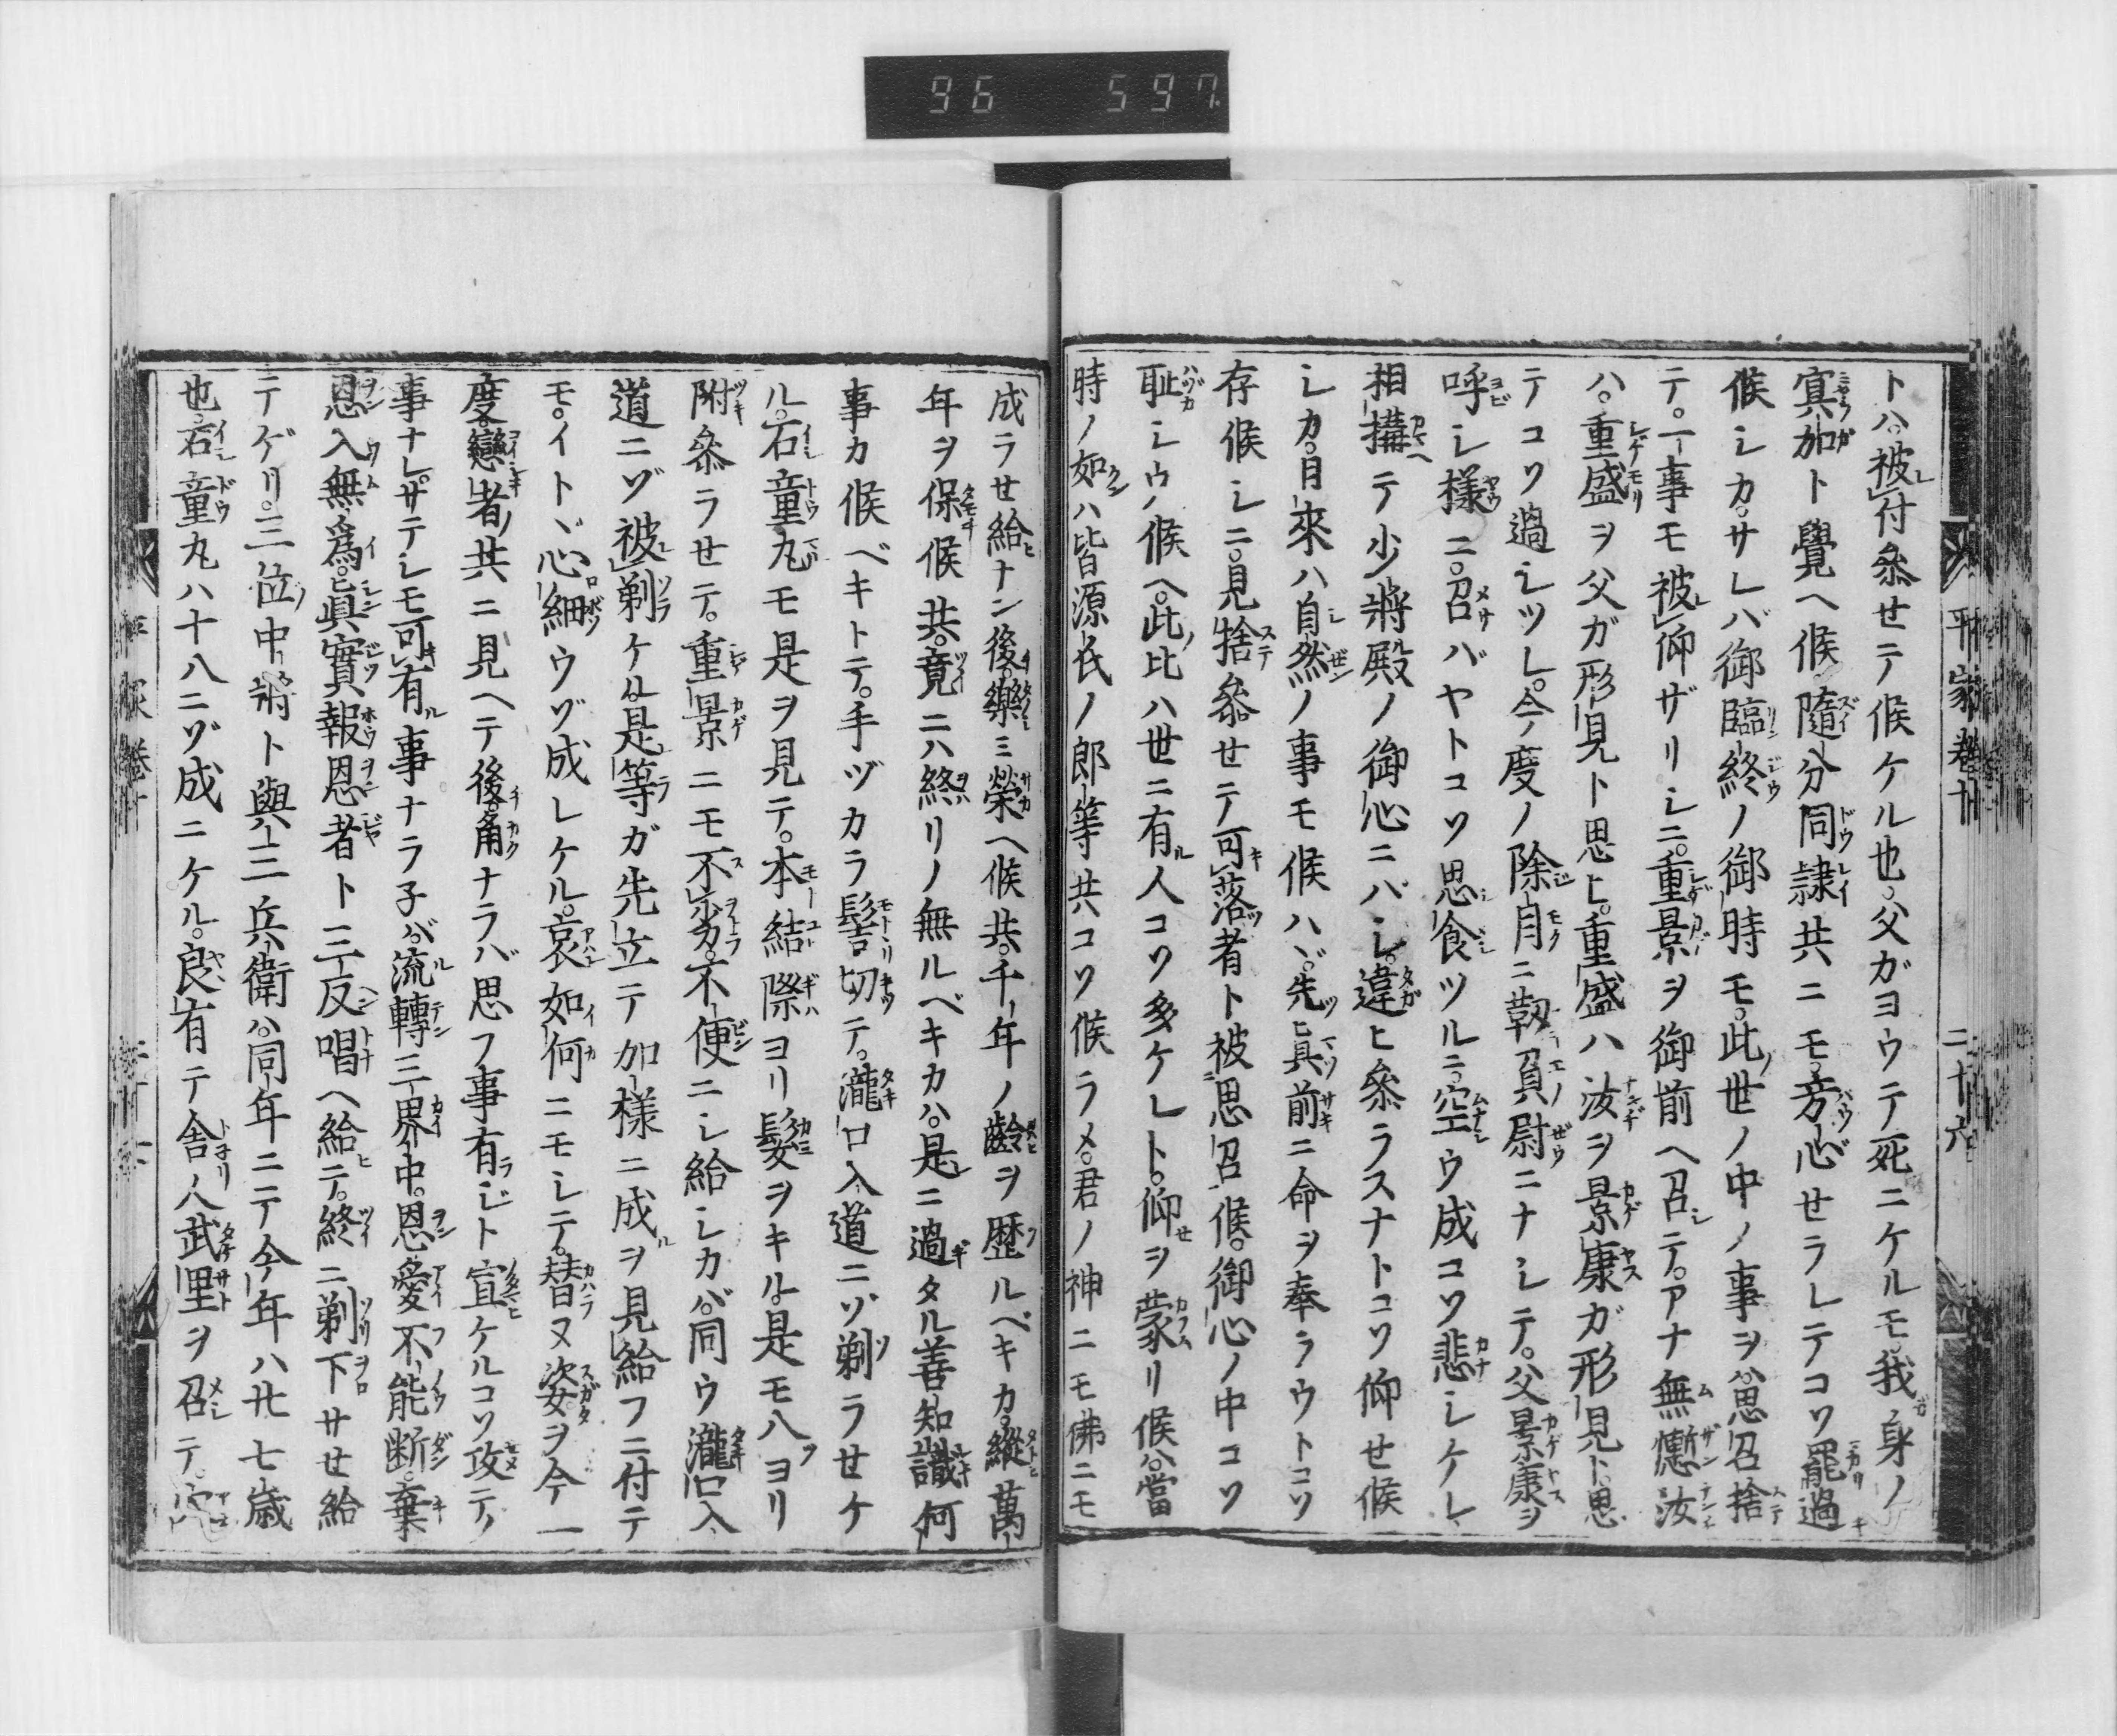 96 597
平家巻十 二十六
トハ。被付参セテ候ケル也。父ガヨウテ死ニケルモ。我身ノ
冥加ト覺ヘ候。隨分同隷共ニモ。方心セラレテコソ罷過
候シカ。サレバ御臨終ノ御時モ。此世ノ中ノ事ヲハ。思召捨
テ。一事モ被仰ザリシニ。重景ヲ御前ヘ召テ。アナ無慙汝
ハ。重盛ヲ父ガ形見ト思ヒ。重盛ハ汝ヲ景康ガ形見ト。思
テコソ過シツレ。今度ノ除月ニ靱負尉ニナシテ。父景康ヲ
呼シ樣ニ。召バヤトコソ思食ツルニ。空ウ成コソ悲シケレ
相搆テ少將殿ノ御心ニバシ。違ヒ參ラスナトコソ仰セ候
シカ。日來ハ自然ノ事モ候ハヾ。先眞前ニ命ヲ奉ラウトコソ
存候シニ。見捨參セテ可落者ト被思召候。御心ノ中コソ
耻シウノ候ヘ。此比ハ世ニ有人コソ多ケレト。仰ヲ蒙リ候ハ。當
時ノ如ハ皆源氏ノ郎等共コソ候ラメ。君ノ神ニモ佛ニモ
成ラセ給ナン後。樂ミ榮ヘ候共。千年ノ齡ヲ歴ルベキカ。縱萬
年ヲ保候共。竟ニハ終リノ無ルベキカハ。是ニ過タル善知識何
事カ候ベキトテ。手ヅカラ髻切テ。瀧口入道ニゾ剃ラセケ
ル。石童丸モ是ヲ見テ。本結際ヨリ髮ヲキル。是モ八ヨリ
附參ラセテ。重景ニモ不劣。不便ニシ給シカバ。同ウ瀧口入
道ニゾ被剃ケル。是等ガ先立テ加樣ニ成ヲ見給フニ付テ
モ。イトヾ心細ウゾ成レケル。哀如何ニモシテ。替ヌ姿ヲ今一
度。戀者共ニ見ヘテ後。角ナラバ思フ事有ジト宣ケルコソ攻テノ
事ナレ。サテシモ可有事ナラ子バ。流轉三界中。恩愛不能断。棄
恩入無爲。眞實報恩者ト三反唱ヘ給テ。終ニ剃下サセ給
テゲリ。三位中將ト與三兵衛ハ。同年ニテ今年ハ廿七歳
也。石童丸ハ十八ニゾ成ニケル。良有テ舎人武里ヲ召テ。